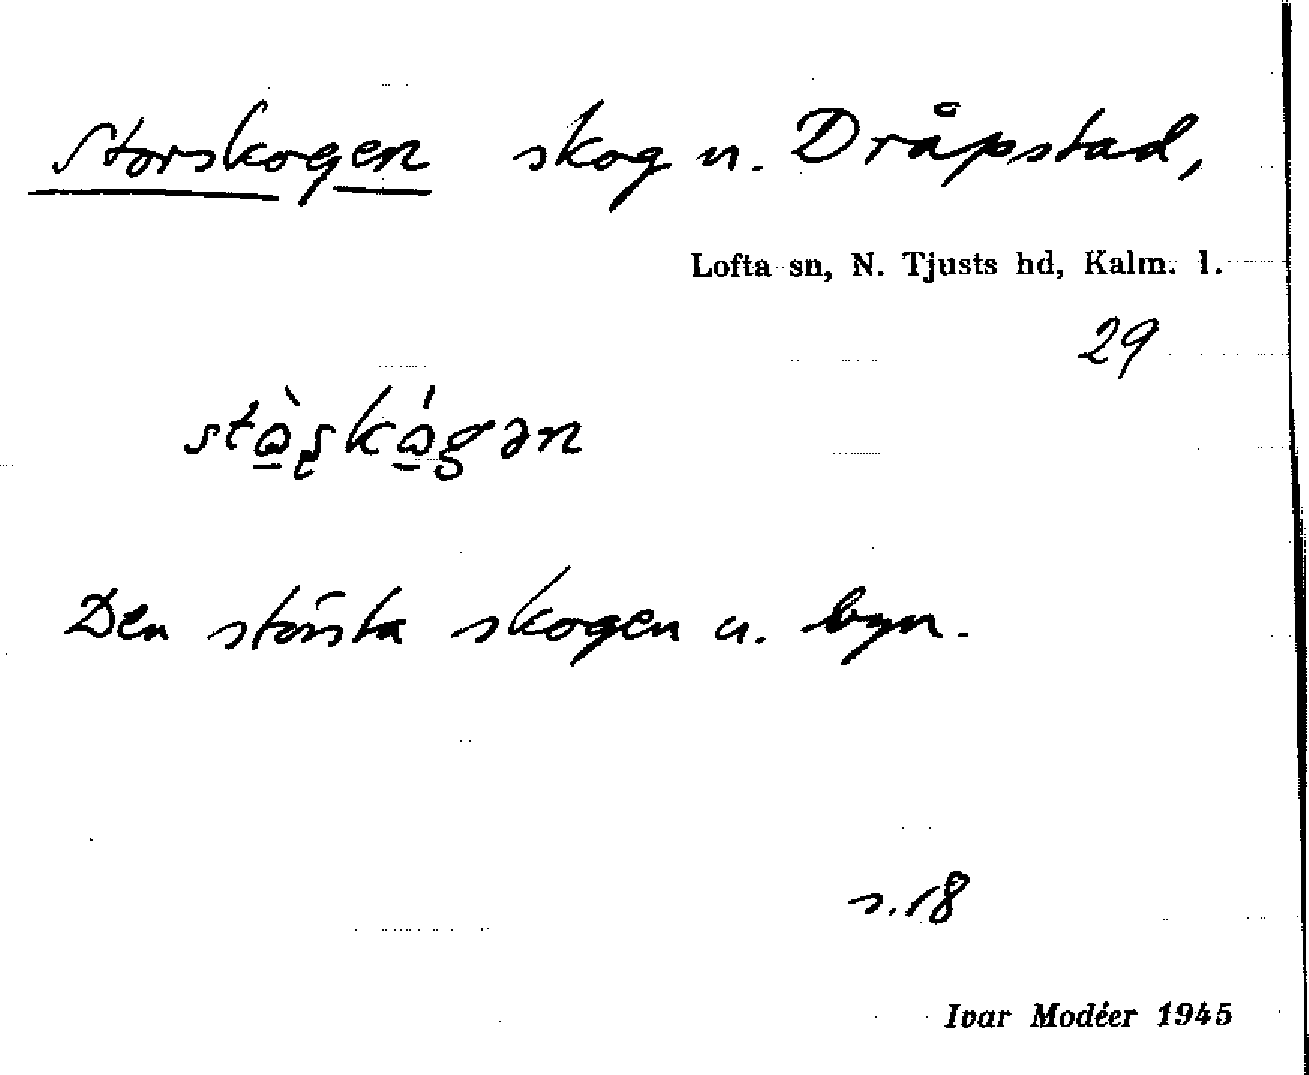 Storskogen skog u. Dråpstad,
Lofta sn, N. Tjusts hd, Kalm. l.
29
Den största skogen u. byn.
s. 18
Ivar Modéer 1945